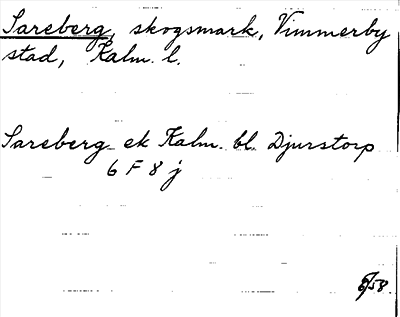 Sareberg, skogsmark, Vimmerby
stad, Kalm. l.
Sareberg ek Kalm. bl. Djurstorp
6 F 8 j